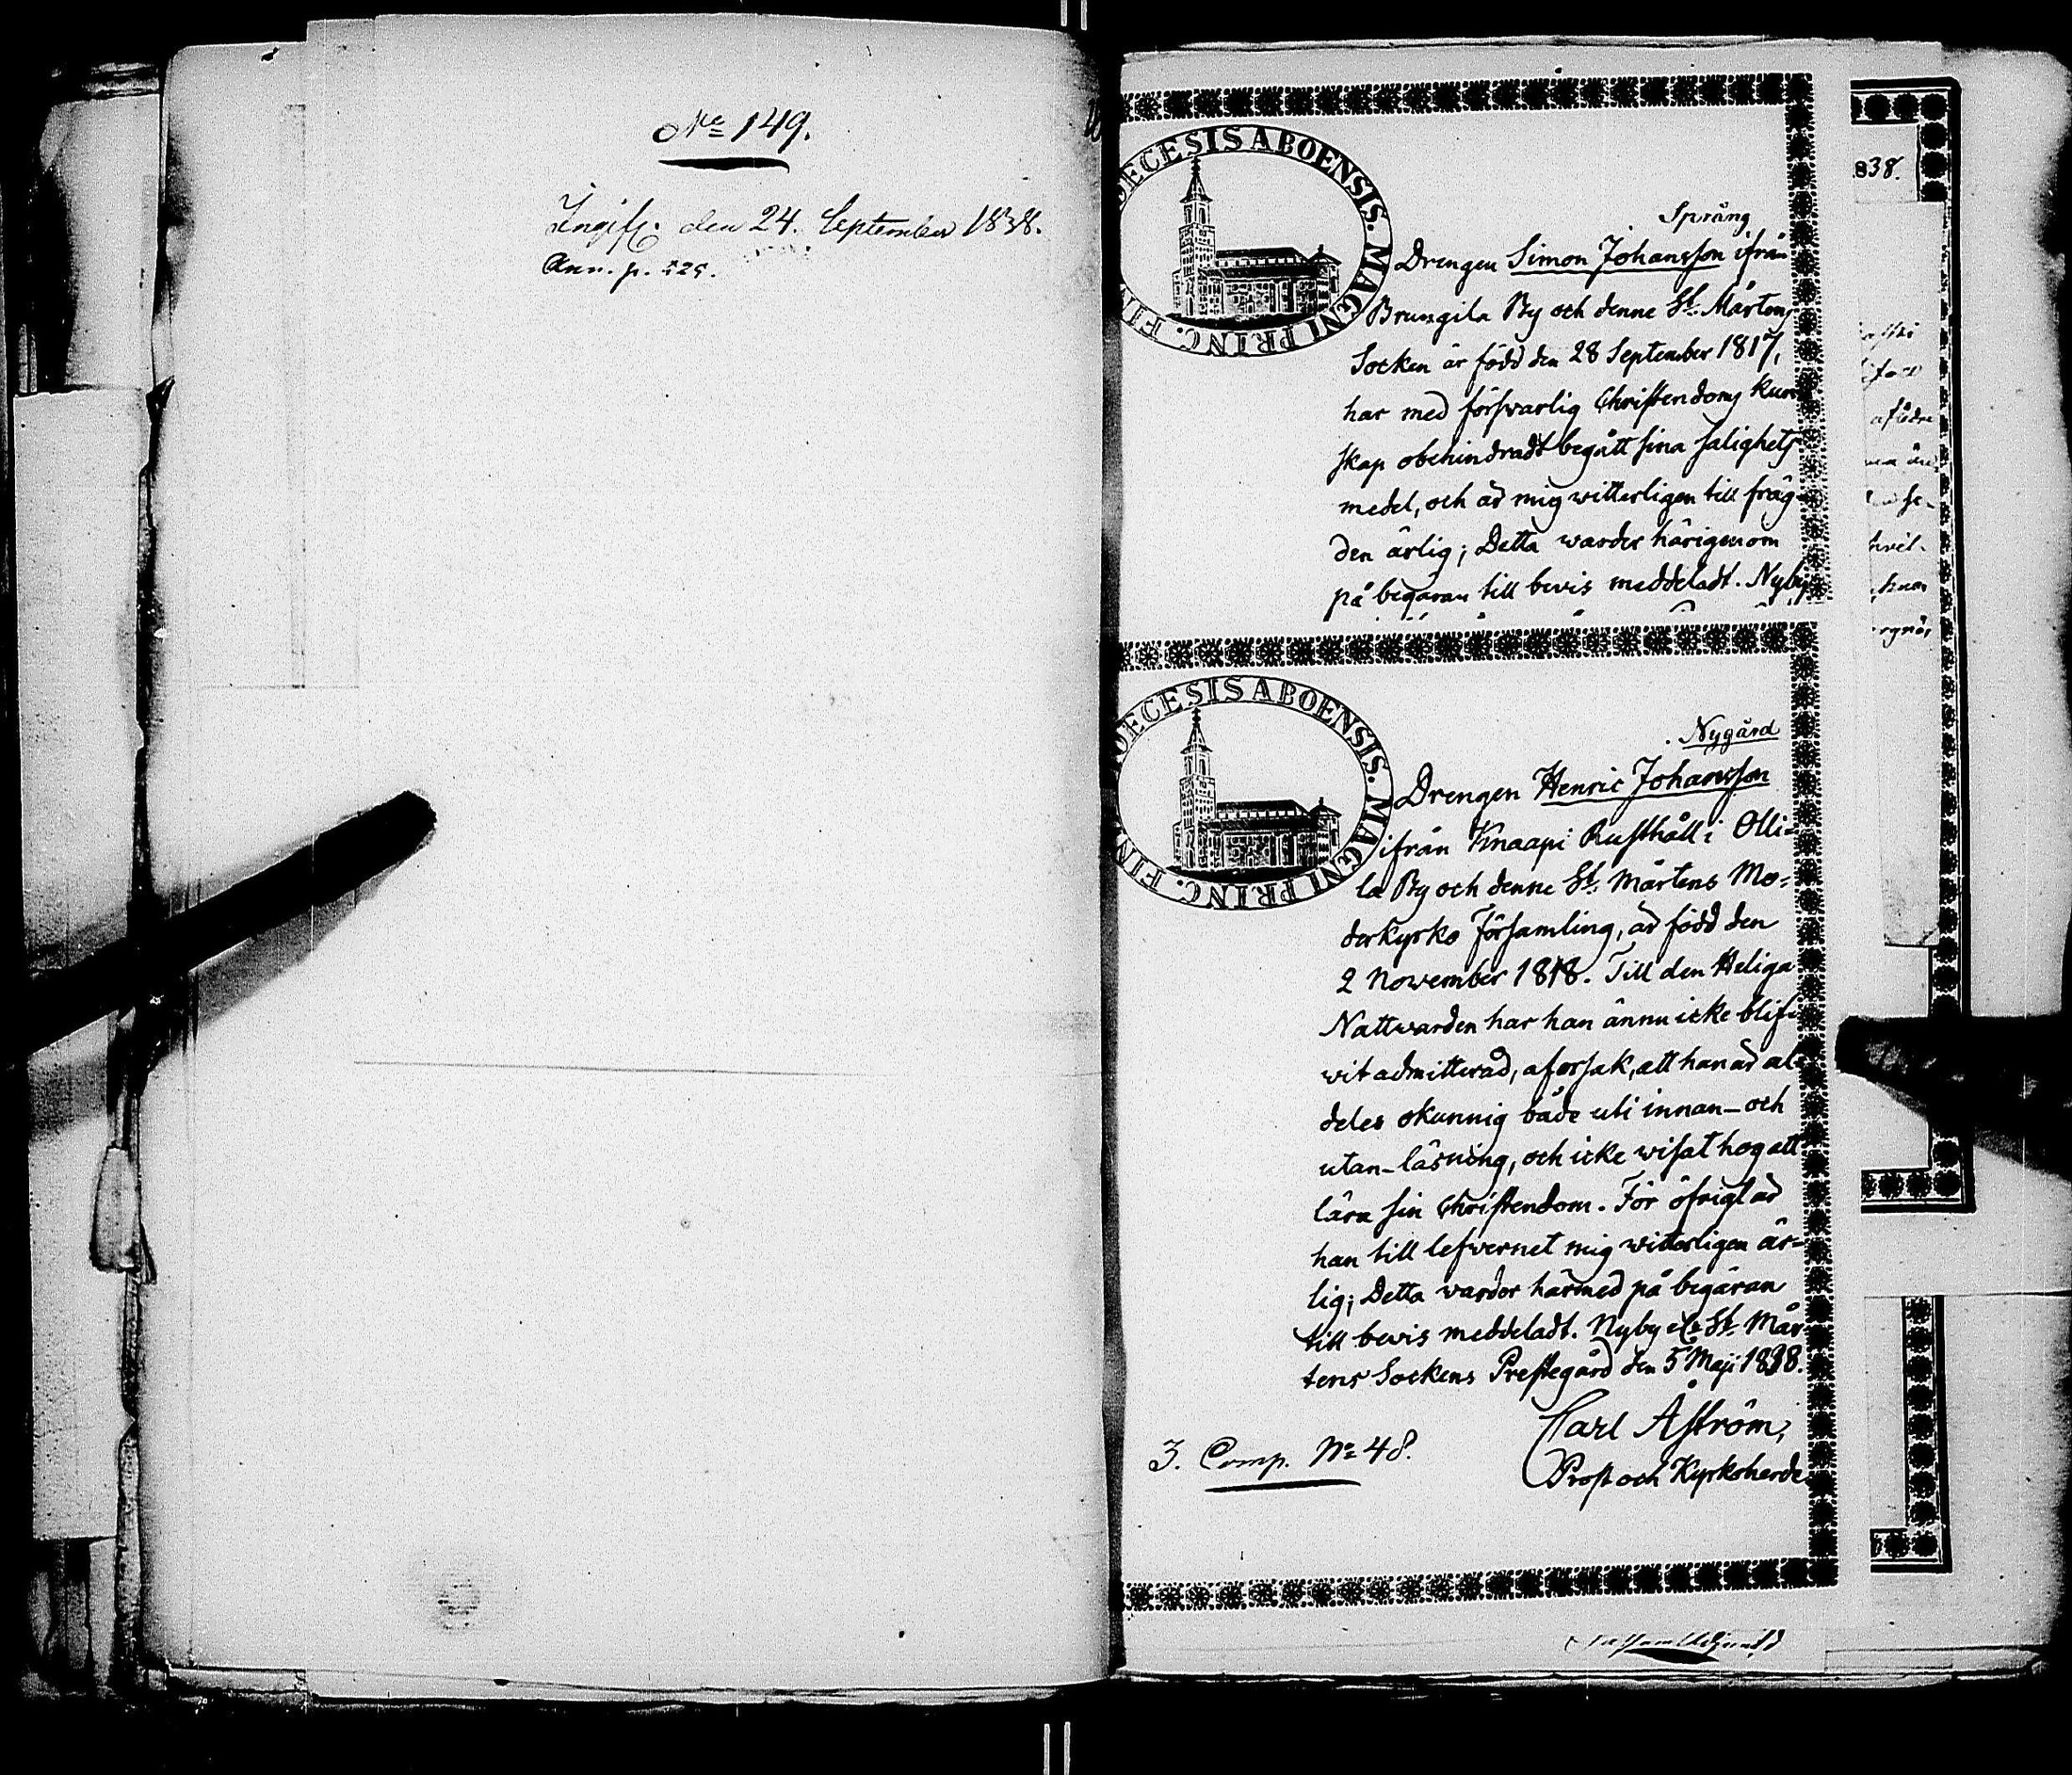 No 149.
Ingift. den 24. September 1838.
Ann. p.
DECESIS ABOENSIS. MAGNI PRINC. FIN
Spräng
Drengen Simon Johansson ifrån
Brungila By och denne St. Mårtens
Socken är född den 28 September 1817,
har med försvarlig Christendoms kun
skap obehindradt begått sina salighets
medel, och är mig witterligen till fräg-
den ärlig; Detta warder härigenom
på begäran till bevis meddeladt. Nyby
DECESIS ABOENSIS. MAGNI PRINC. FIN
Nygård
Drengen Henric Johansson
ifrån Knaapi Rusthåll i Olli-
la By och denne St. Mårtens Mo-
derkyrko Församling, är född den
2 November 1818. Till den Heliga
Nattwarden har han ännu icke blif-
wit admitterad, af orsak, att han är al-
deles okunnig både uti innan- och
utan-läsning, och icke wisat hog att
lära sin Christendom. För öfrigt är
han till lefwernet mig witterligen är-
lig; Detta warder härmed på begäran
till bevis meddeladt. Nyby & St. Mår-
tens Sockens Prestegård den 5 Maji 1838.
Carl Åström,
Prost och Kyrkoherde
3. Comp. No 48.
838.